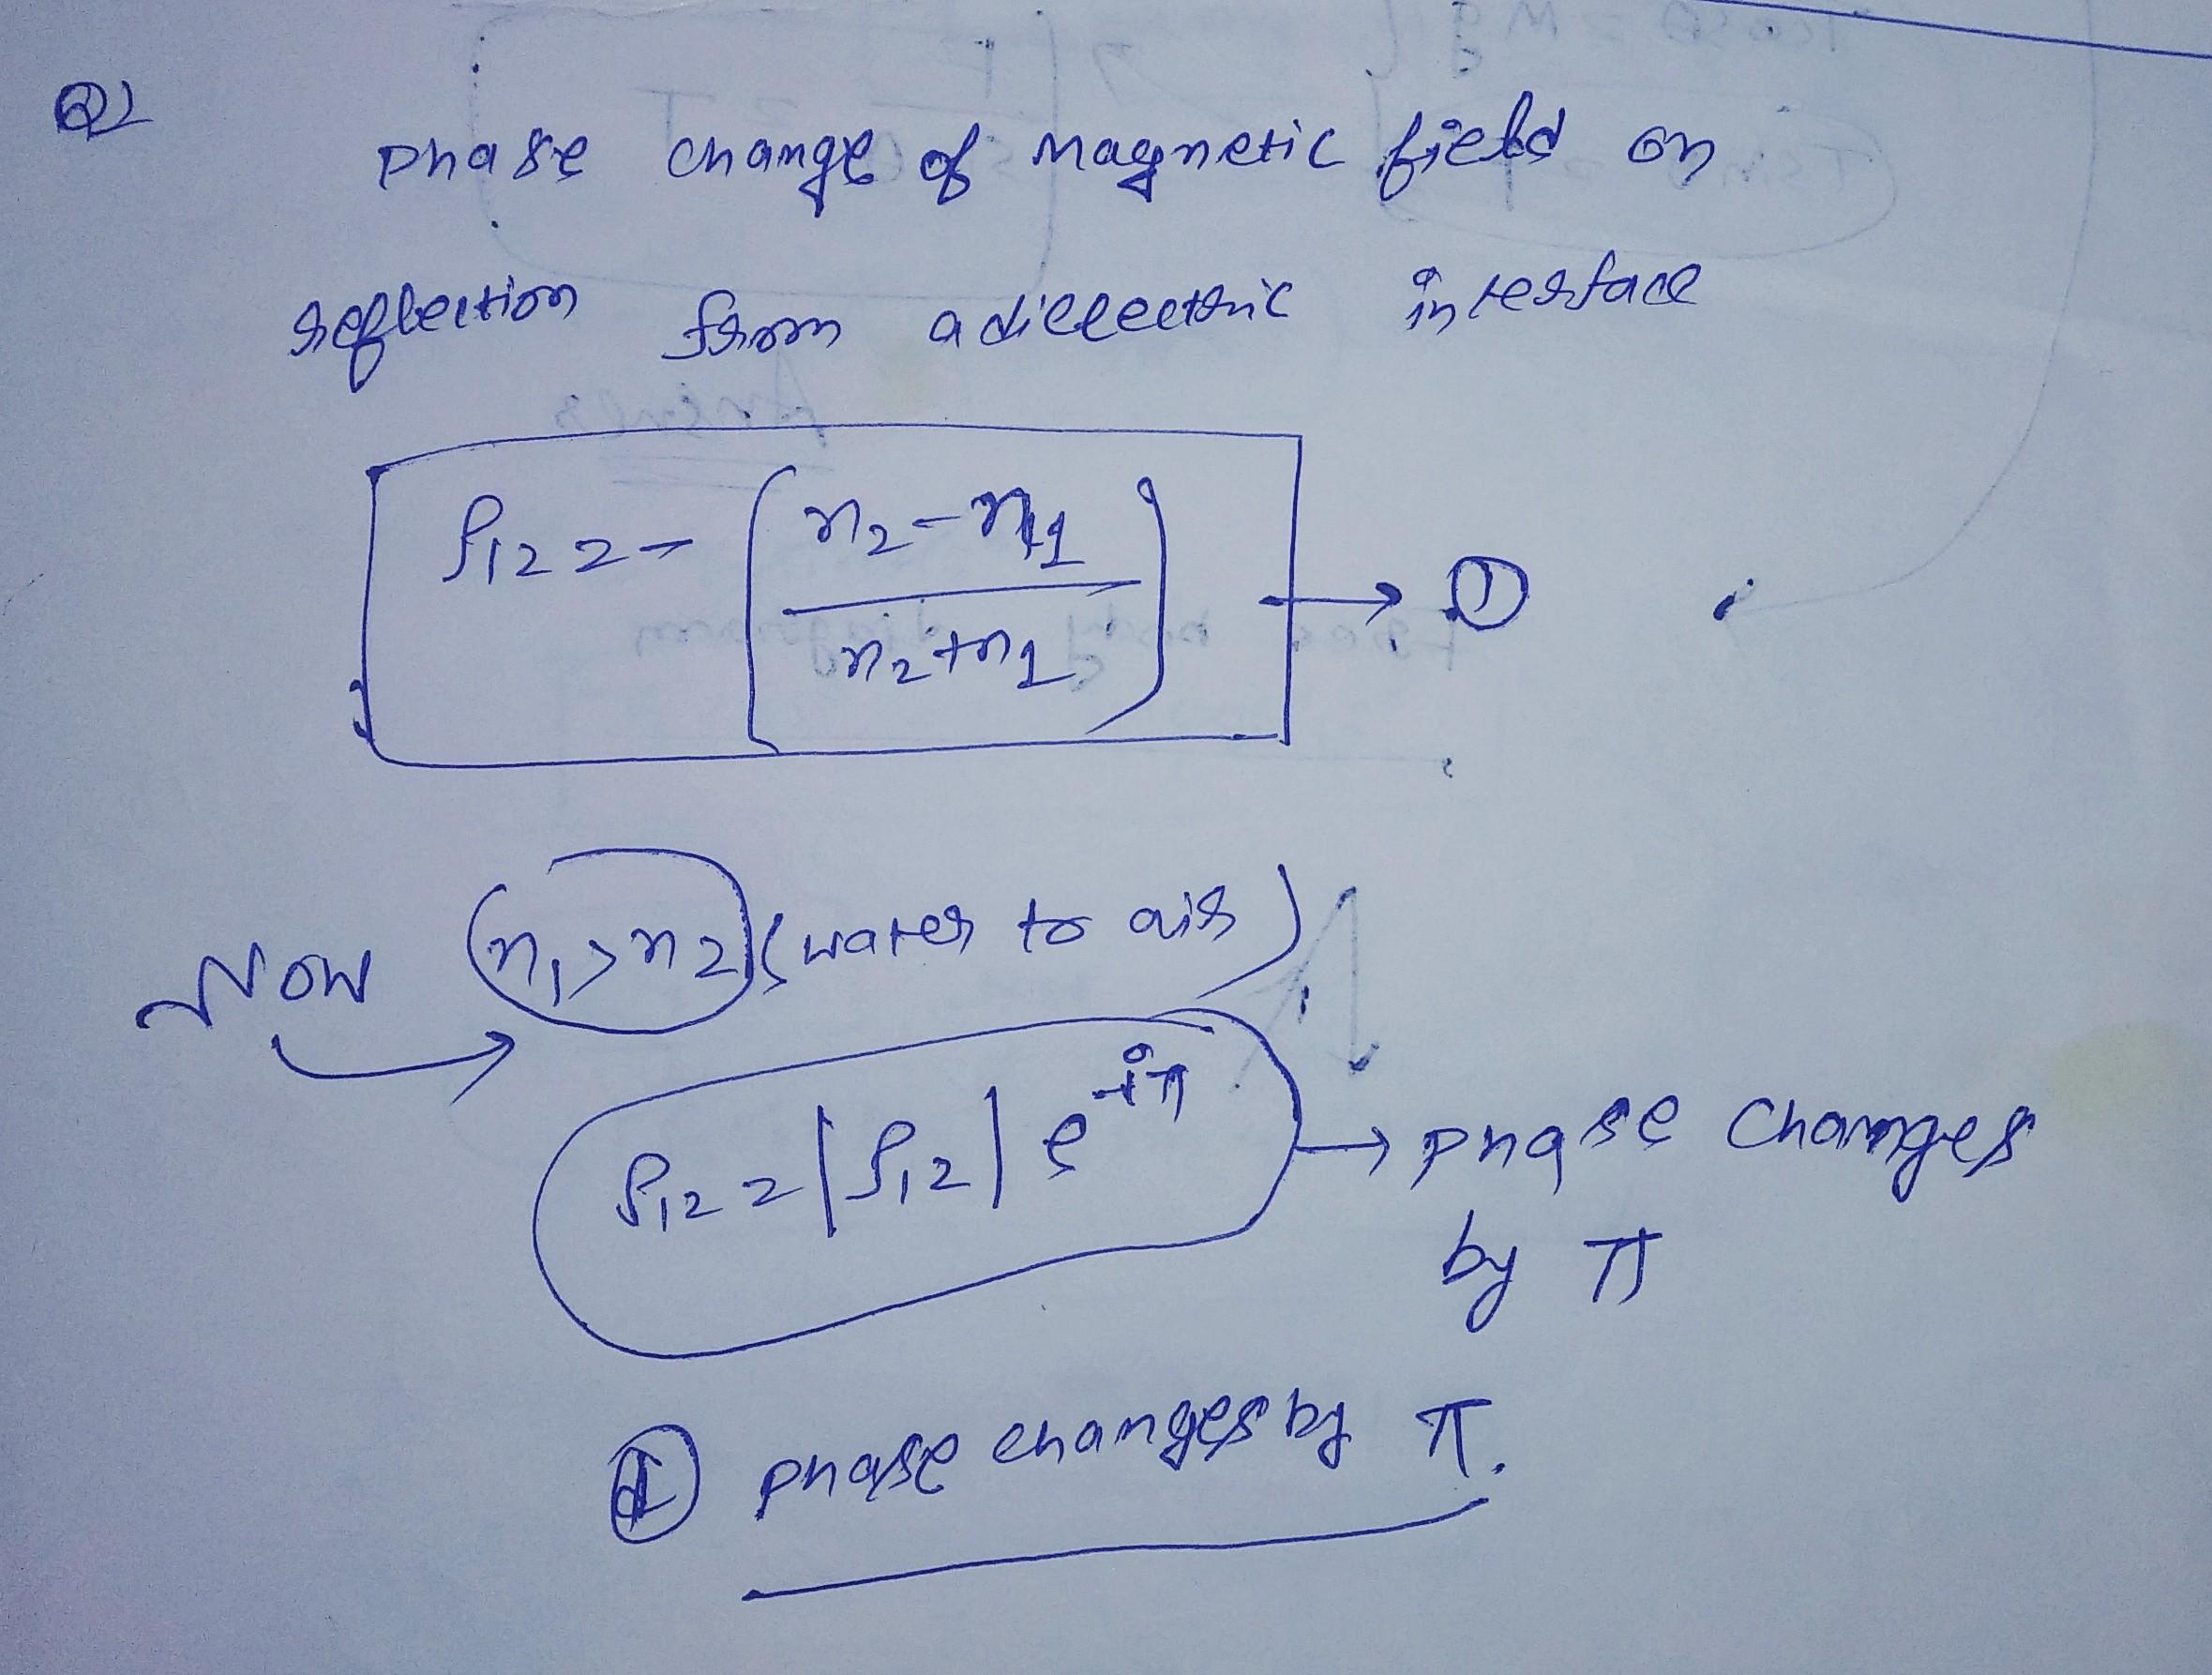 Q2
Phase change of Magnetic field on
reflection from a dielectric interface
ρ12 = - ( n2 - n1 / n2 + n1 ) → ①
Now (n1 > n2) (water to air)
ρ12 = |ρ12| e^iπ → phase changes
by π
ⓓ phase changes by π.